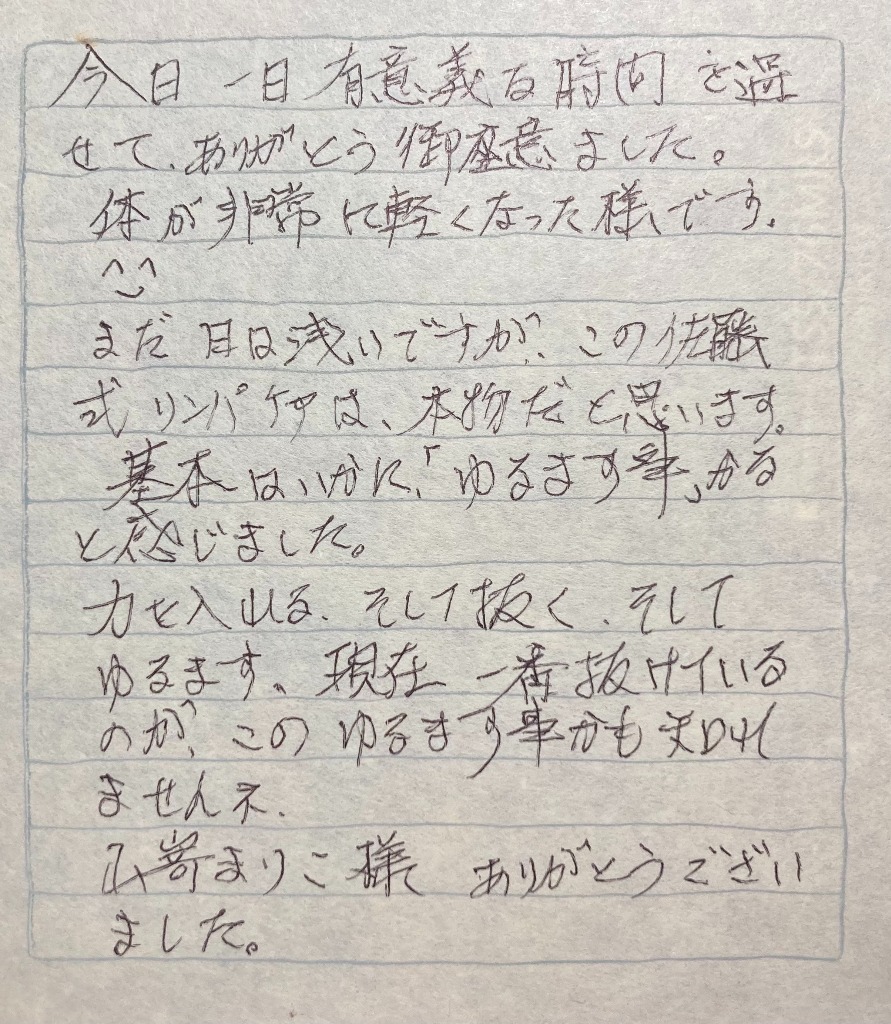 今日一日有意義な時間を過
せて、ありがとう御座意ました。
体が非常に軽くなった様です。
^^
まだ日は浅いですが、この佐藤
式リンパケアは、本物だと思います。
基本はいかに、「ゆるます事」かる
と感じました。
力を入れる、そして抜く、そして
ゆるます、現在一番抜けている
のが、このゆるます事かも知れ
ませんネ、
山嵜まりこ様 ありがとうござい
ました。